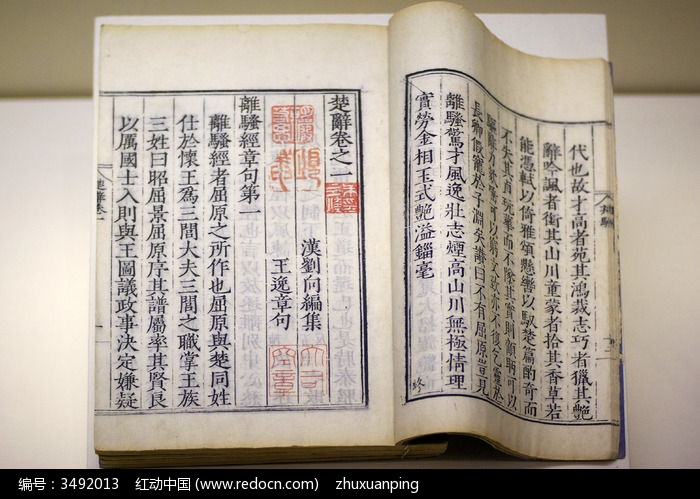 代也故才高者苑其鴻裁志巧者獵其艷
辭吟諷者銜其山川童蒙者拾其香草若
能憑軾以倚雅頌懸轡以馭楚篇酌奇而
不失其貞翫華而不墜其實則顧眄可以
驅辭力欬唾可以窮文致亦不復乞靈於
長卿假寵於子淵矣讚曰不有屈原豈見
離騷驚才風逸壯志煙高山川無極情理
實勞金相玉式艷溢錙毫
終
楚辭卷之一
漢劉向編集
王逸章句
離騷經章句第一
離騷經者屈原之所作也屈原與楚同姓
仕於懷王爲三閭大夫三閭之職掌王族
三姓曰昭屈景屈原序其譜屬率其賢良
以厲國士入則與王圖議政事決定嫌疑
编号：3492013 红动中国 (www.redocn.com) zhuxuanping